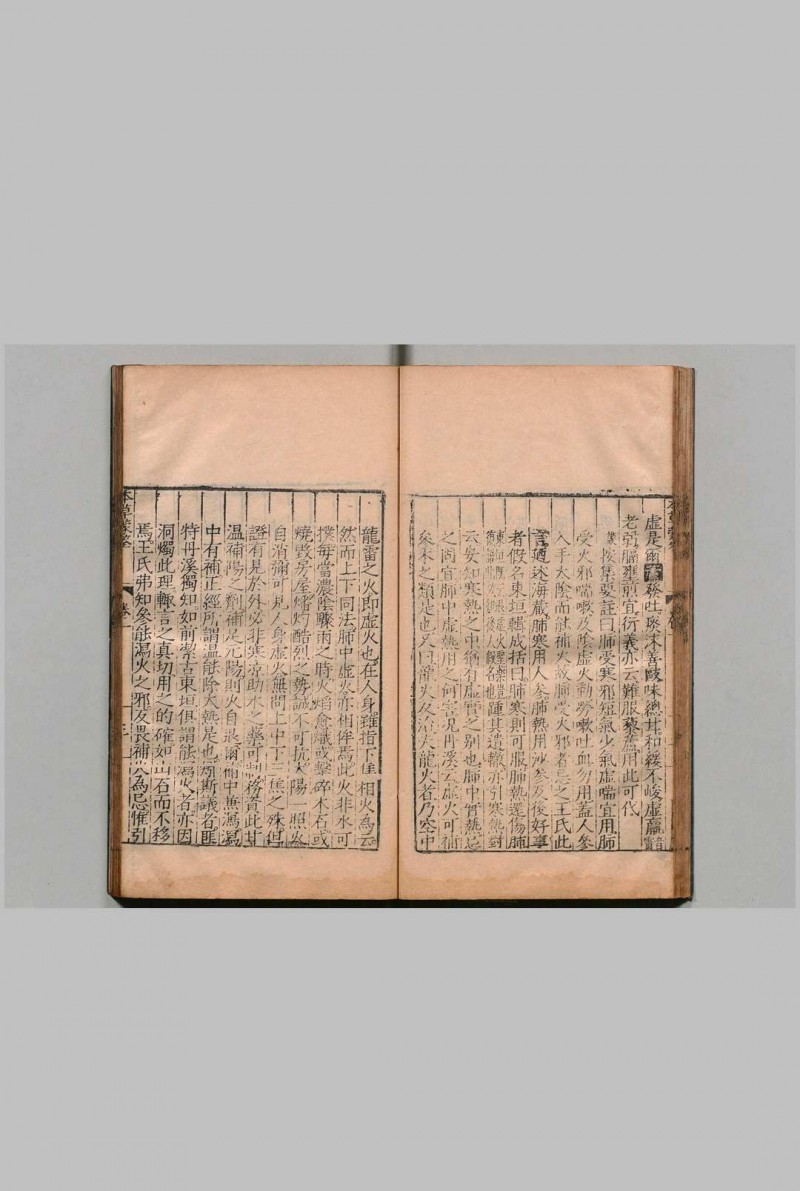 虛是爾蘆發吐痰沫善歐味總甘和緩不峻虛羸
老弱膈壅煎宜衍義亦云難服藜蘆用此可代
謨按集要註曰肺受寒邪短氣少氣虛喘宜用肺
受火邪喘嗽及陰虛火動勞嗽吐血勿用蓋人參
入手太陰而能補火故肺受火邪者忌之王氏此
言迺述海藏肺寒用人參肺熱用沙參及後好事
者假名東垣輯成括曰肺寒則可服肺熱還傷肺
其遺轍亦引寒熱對
云安知寒熱之中猶有虛實之別也肺中實熱忌
之尚宜肺中虛熱用之何害況丹溪云虛火可補
矣朮之類是也又曰龍火反治夫龍火者乃空中
龍雷之火即虛火也在人身雖指下焦相火為云
然而上下同法肺中虛火亦相侔焉此火非水可
撲每當濃陰驟雨之時火焰愈熾或擊碎木石或
燒毀房屋燔灼酷烈之勢誠不可抗太陽一照火
自消彌可見人身虛火無問上中下三焦之殊但
證有見於外必非寒涼助水之藥可制務資此甘
溫補陽之劑補足元陽則火自退爾正中無瀉瀉
中有補正經所謂溫能除大熱是也煩斯議者匪
特丹溪獨知如前潔古東垣俱謂能瀉火者亦因
洞燭此理輙言之真切用之的確如山石而不移
焉王氏弗知參能瀉火之邪反畏補火為忌惟引
卷一